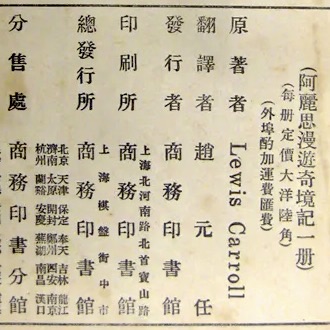 (阿麗思漫遊奇境記一册)
(每册定價大洋陸角)
(外埠酌加運費匯費)
原著者 Lewis Carroll
翻譯者 趙元任
發行者 商務印書館
印刷所 上海北河南路北首寶山路 商務印書館
總發行所 上海棋盤街中市 商務印書館
分售處 商務印書分館
北京 天津 保定 奉天 吉林 龍江
濟南 太原 開封 鄭州 西安 南京
杭州 蘭谿 安慶 蕪湖 南昌 漢口